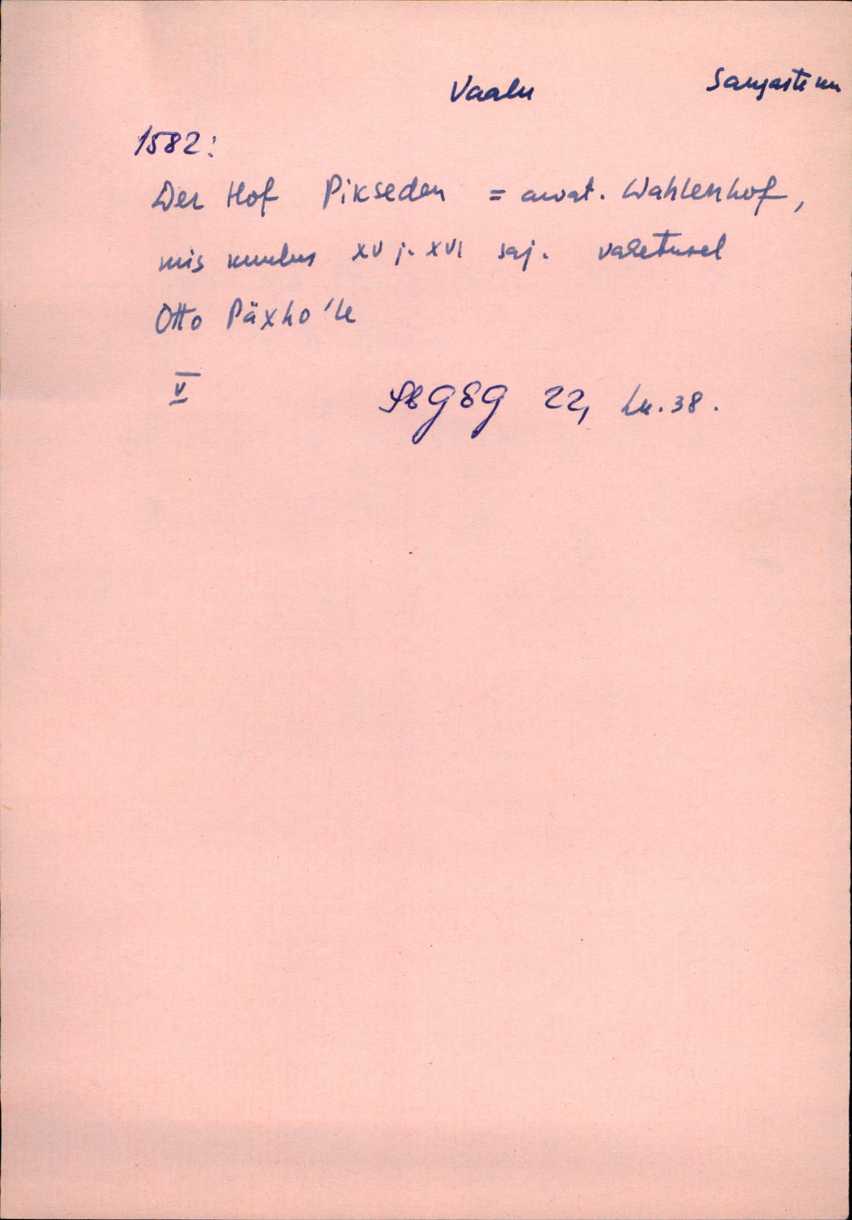 Vaalu Sangaste mn
1582:
Der Hof Pikseden = arvat. Wahlenhof,
mis kuulus XV j. XVI saj. vahetusel
Otto Päxho'le
V
SbGEG 22, lk. 38.